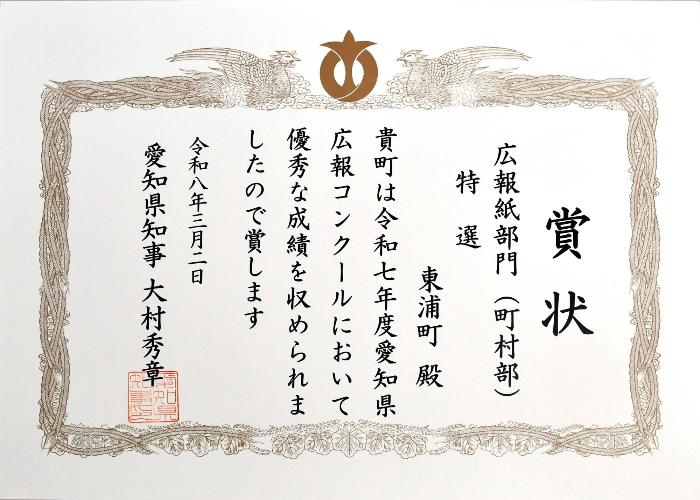 賞状
広報紙部門（町村部）
特選
東浦町 殿
貴町は令和七年度愛知県
広報コンクールにおいて
優秀な成績を収められま
したので賞します
令和八年三月二日
愛知県知事 大村秀章
愛知県
知事印